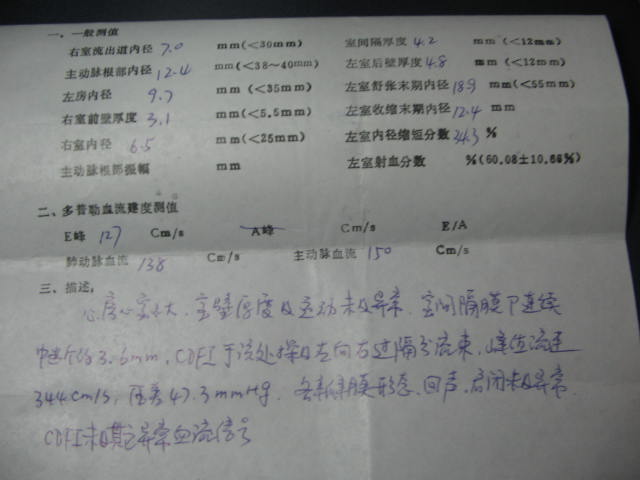 一、一般测值
右室流出道内径 7.0 mm(<30mm) 室间隔厚度 4.2 mm (<12mm)
主动脉根部内径 12.4 mm(<38~40mm) 左室后壁厚度 4.8 mm (<12mm)
左房内径 9.7 mm (<35mm) 左室舒张末期内径 18.9 mm(<55mm)
右室前壁厚度 3.1 mm(<5.5mm) 左室收缩末期内径 12.4 mm
右室内径 6.5 mm(<25mm) 左室内径缩短分数 34.3 %
主动脉根部振幅 mm 左室射血分数 %(60.08±10.66%)
二、多普勒血流速度测值
E峰 127 Cm/s A峰 Cm/s E/A
肺动脉血流 138 Cm/s 主动脉血流 150 Cm/s
三、描述:
心房心室不大,室壁厚度及运动未及异常.室间隔膜下连续
中断约3.6mm,CDFI于该处探及左向右过隔分流束,峰值流速
344cm/s,压差47.3mmHg.各瓣膜形态、回声、启闭未及异常.
CDFI未见异常血流信号